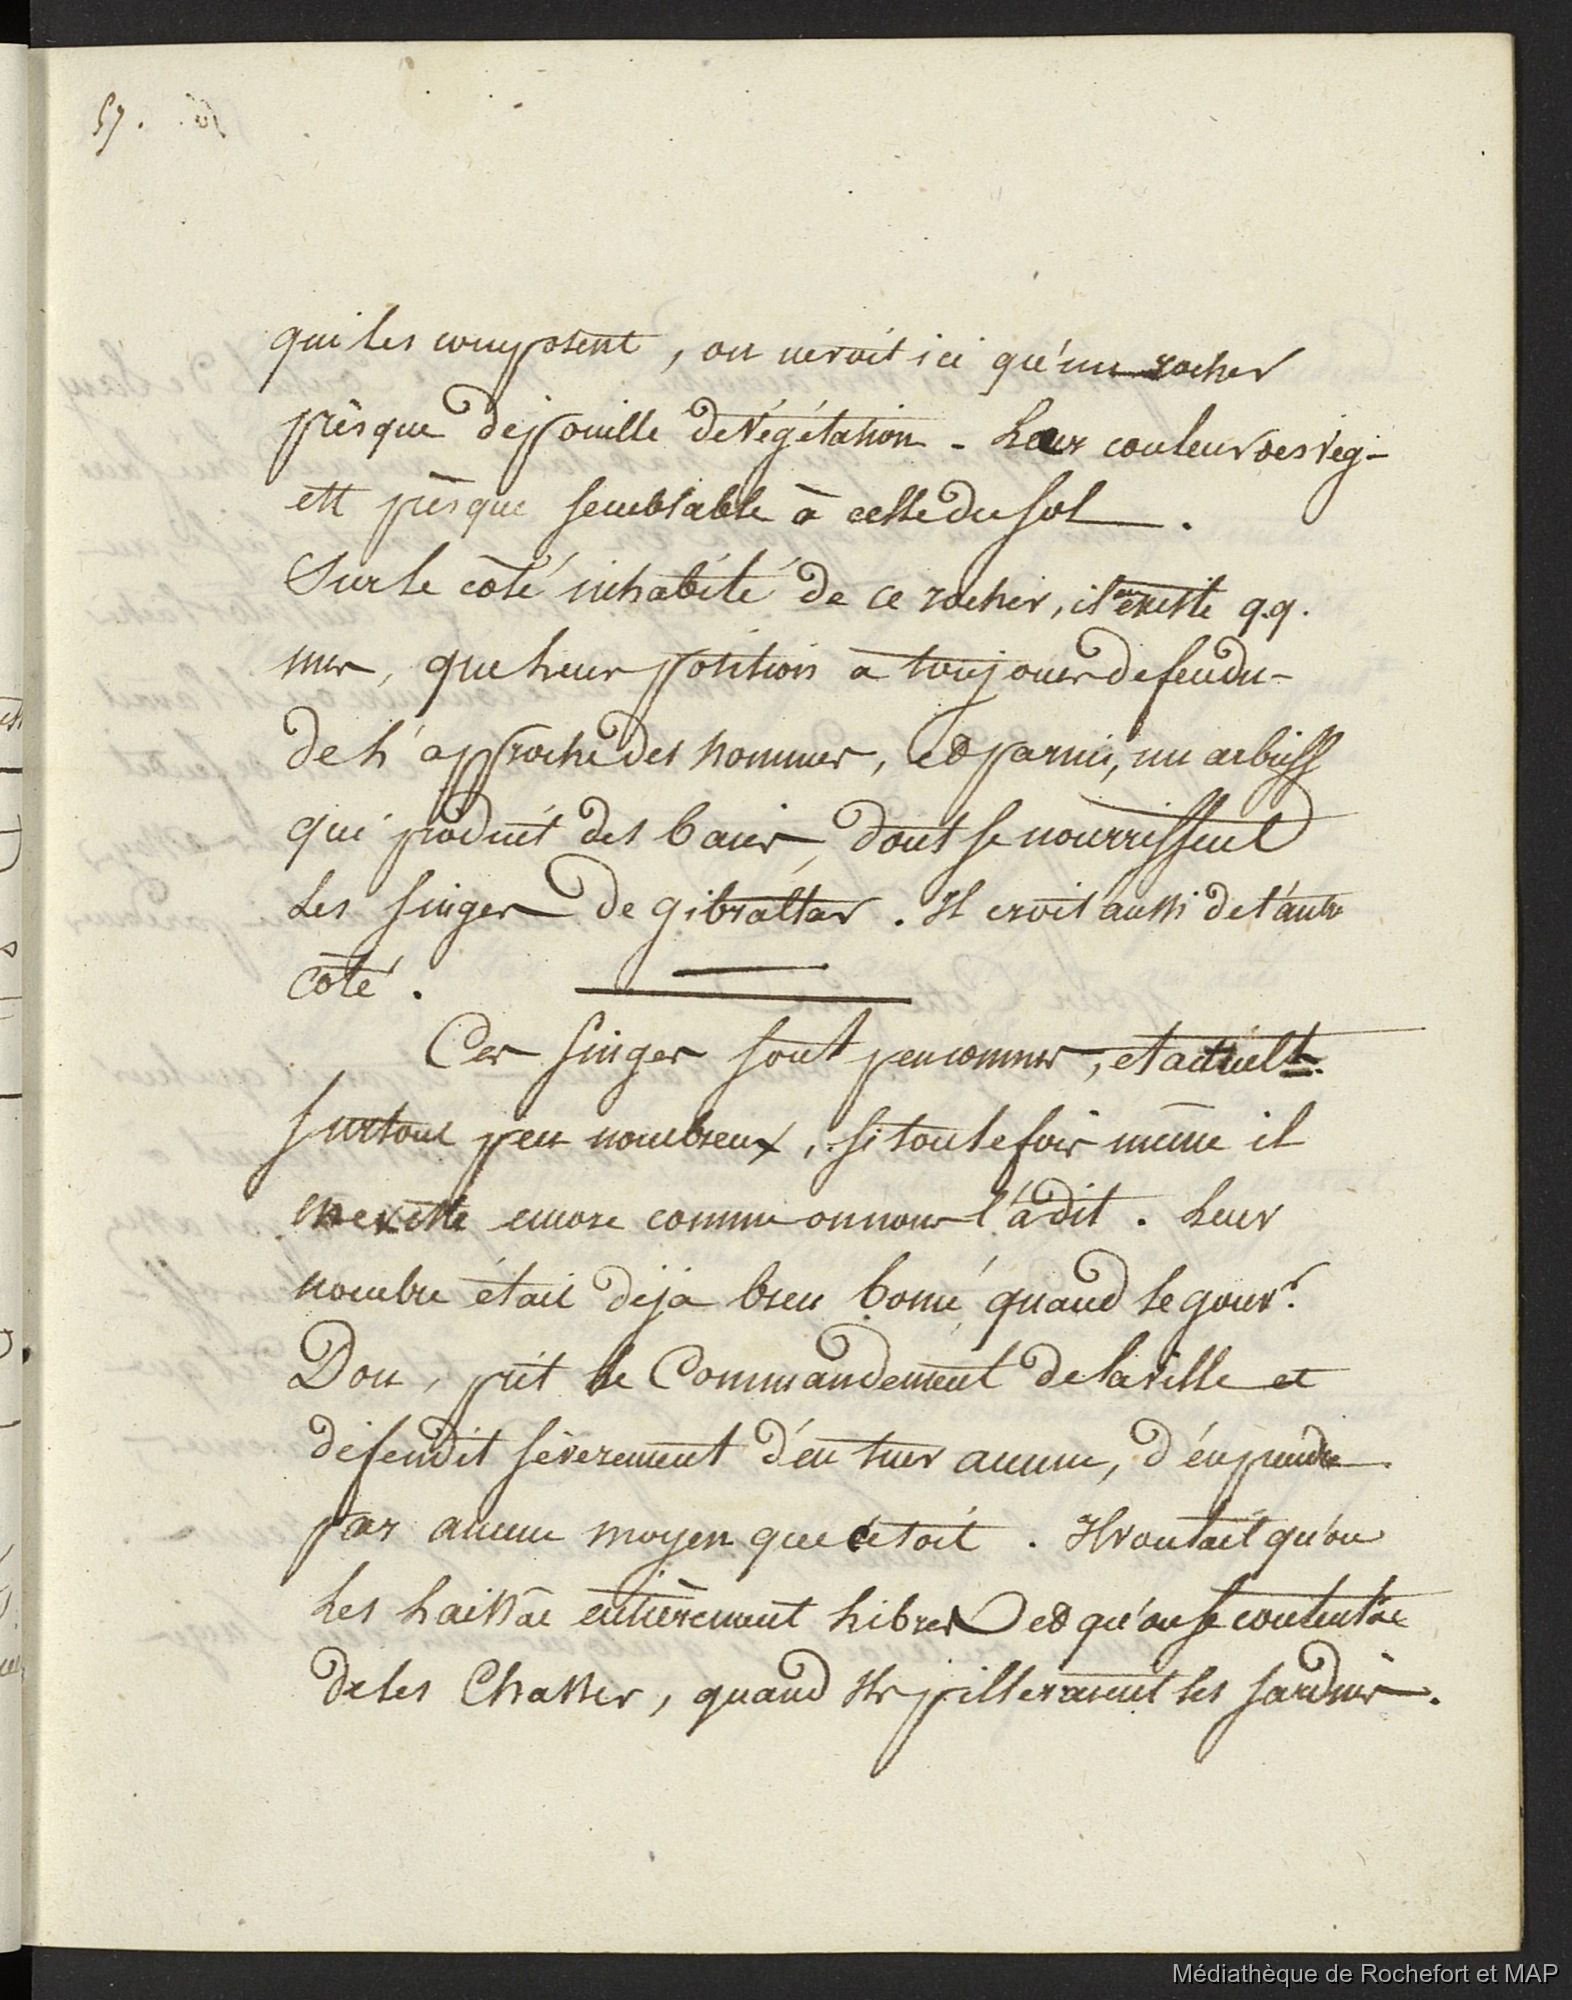 57.
qui les composent, on ne voit ici qu'un rocher
prèsque dépouillé de végétation - Leur couleur des vég-
est prèsque semblable à celle du sol.
Sur le côté inhabité de ce rocher, il en existe q.q.
unes, que leur position a toujours defendu-
de l'approche des hommes, et parmi, un arbuste
qui produit des baies, dont se nourrissent
les singes de gibraltar. Il croit aussi de l'autre
côté.
Ces singes sont peu connus, et actuelt.
surtout peu nombreux, si toutefois même il
en existe encore comme on nous l'a dit. Leur
nombre était déja bien borné, quand le gouvr.
Don, prit le Commandement de la ville et
défendit sévèrement d'en tuer aucun, d'en prendre
par aucun moyen que cetoit. Il voulait qu'on
les laissât entièrement libres et qu'on se contentât
de les Chasser, quand ils pilleraient les jardins.
Médiathèque de Rochefort et MAP